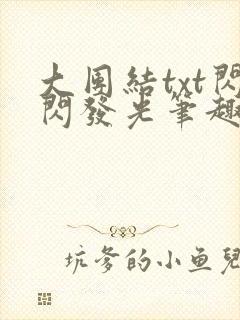 大團結txt閃
閃發光筆趣
坑爹的小鱼兒